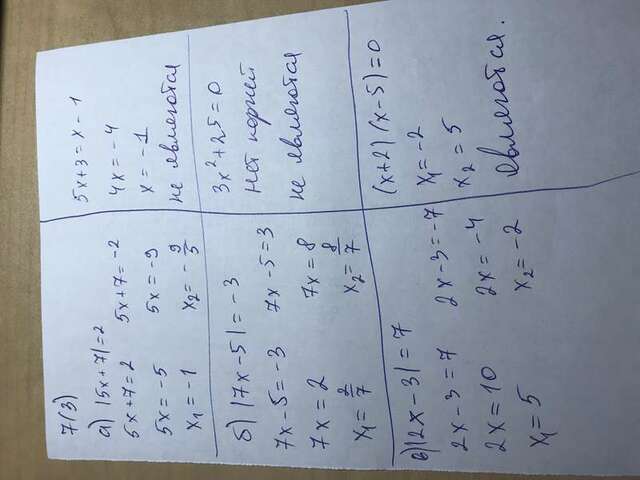 7(3)
а) |5x+7|=2
5x+7=2 5x+7=-2
5x=-5 5x=-9
x₁=-1 x₂=-9/5
5x+3=x-1
4x=-4
x=-1
не являются
б) |7x-5|=-3
7x-5=-3 7x-5=3
7x=2 7x=8
x₁=2/7 x₂=8/7
3x²+25=0
Нет корней
не являются
в) |2x-3|=7
2x-3=7 2x-3=-7
2x=10 2x=-4
x₁=5 x₂=-2
(x+2)(x-5)=0
x₁=-2
x₂=5
являются.